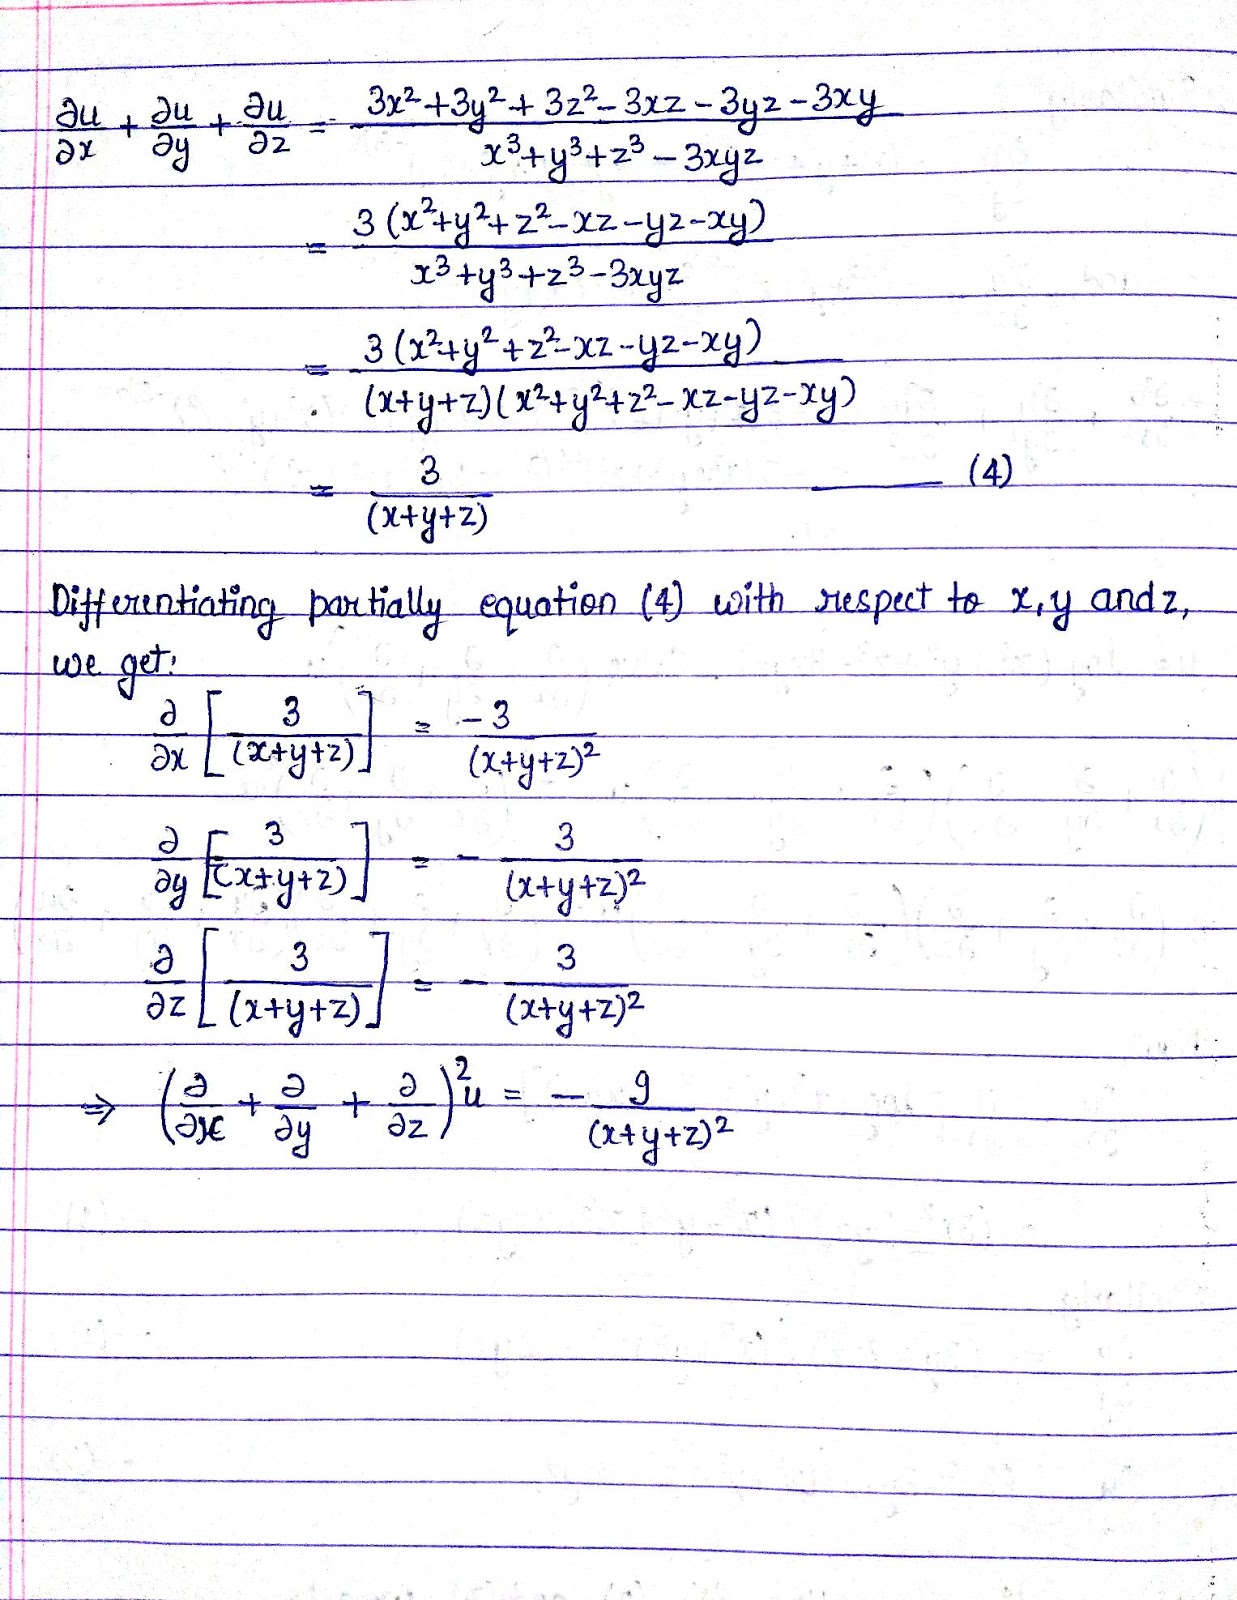 ∂u/∂x + ∂u/∂y + ∂u/∂z = (3x² + 3y² + 3z² - 3xz - 3yz - 3xy)/(x³ + y³ + z³ - 3xyz)
= 3(x² + y² + z² - xz - yz - xy)/(x³ + y³ + z³ - 3xyz)
= 3(x² + y² + z² - xz - yz - xy)/((x+y+z)(x² + y² + z² - xz - yz - xy))
= 3/(x+y+z) —— (4)
Differentiating partially equation (4) with respect to x, y and z,
we get:
∂/∂x [3/(x+y+z)] = -3/(x+y+z)²
∂/∂y [3/(x+y+z)] = - 3/(x+y+z)²
∂/∂z [3/(x+y+z)] = - 3/(x+y+z)²
⇒ (∂/∂x + ∂/∂y + ∂/∂z)² u = - 9/(x+y+z)²